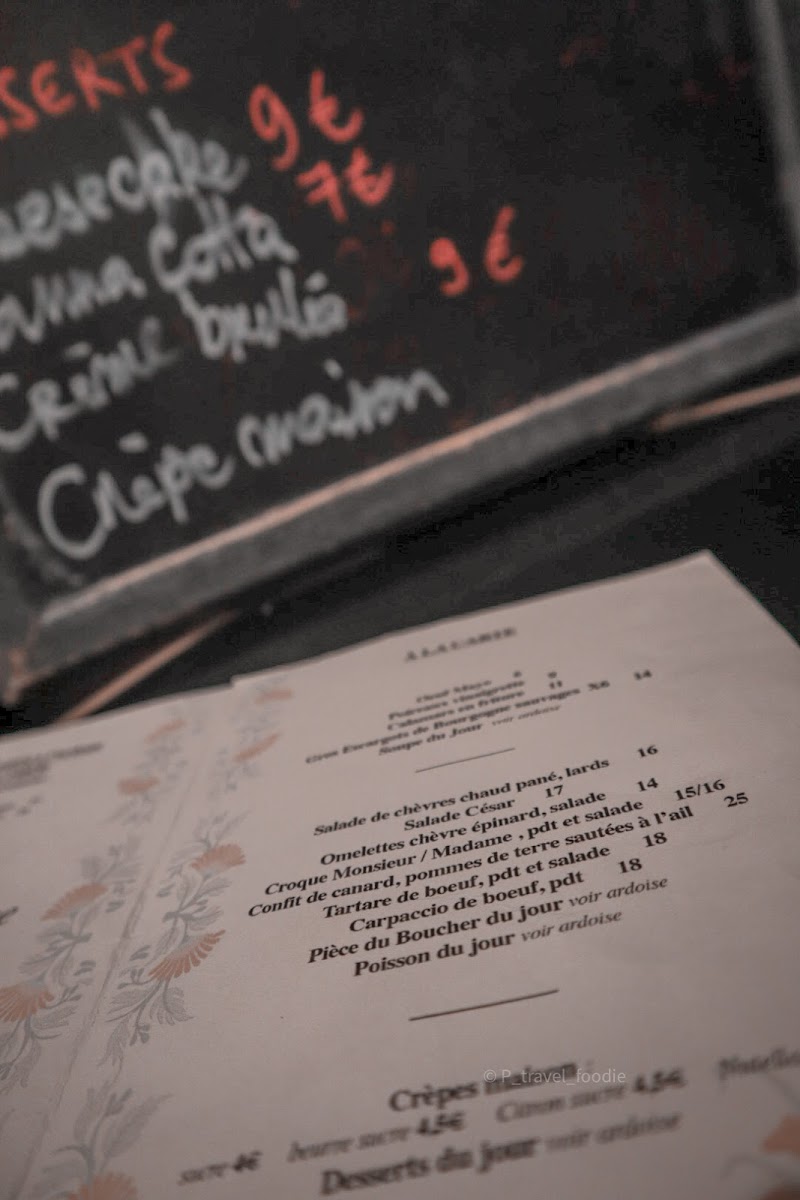 SSERTS
eesecake 9€
anna Cotta 7€
Crème brulée 9€
Crêpe maison
A LA CARTE
Oeuf Mayo 6
Poireaux vinaigrette 9
Calamars en friture 11
Gros Escargots de Bourgogne sauvages X6 14
Soupe du Jour voir ardoise
Salade de chèvres chaud pané, lards 16
Salade César 17
Omelettes chèvre épinard, salade 14
Croque Monsieur / Madame , pdt et salade 15/16
Confit de canard, pommes de terre sautées à l'ail 25
Tartare de boeuf, pdt et salade 18
Carpaccio de boeuf, pdt 18
Pièce du Boucher du jour voir ardoise
Poisson du jour voir ardoise
© P_travel_foodie
Crèpes maison
sucre 4€ beurre sucre 4,5€ Citron sucre 4,5€ Nutella
Desserts du jour voir ardoise